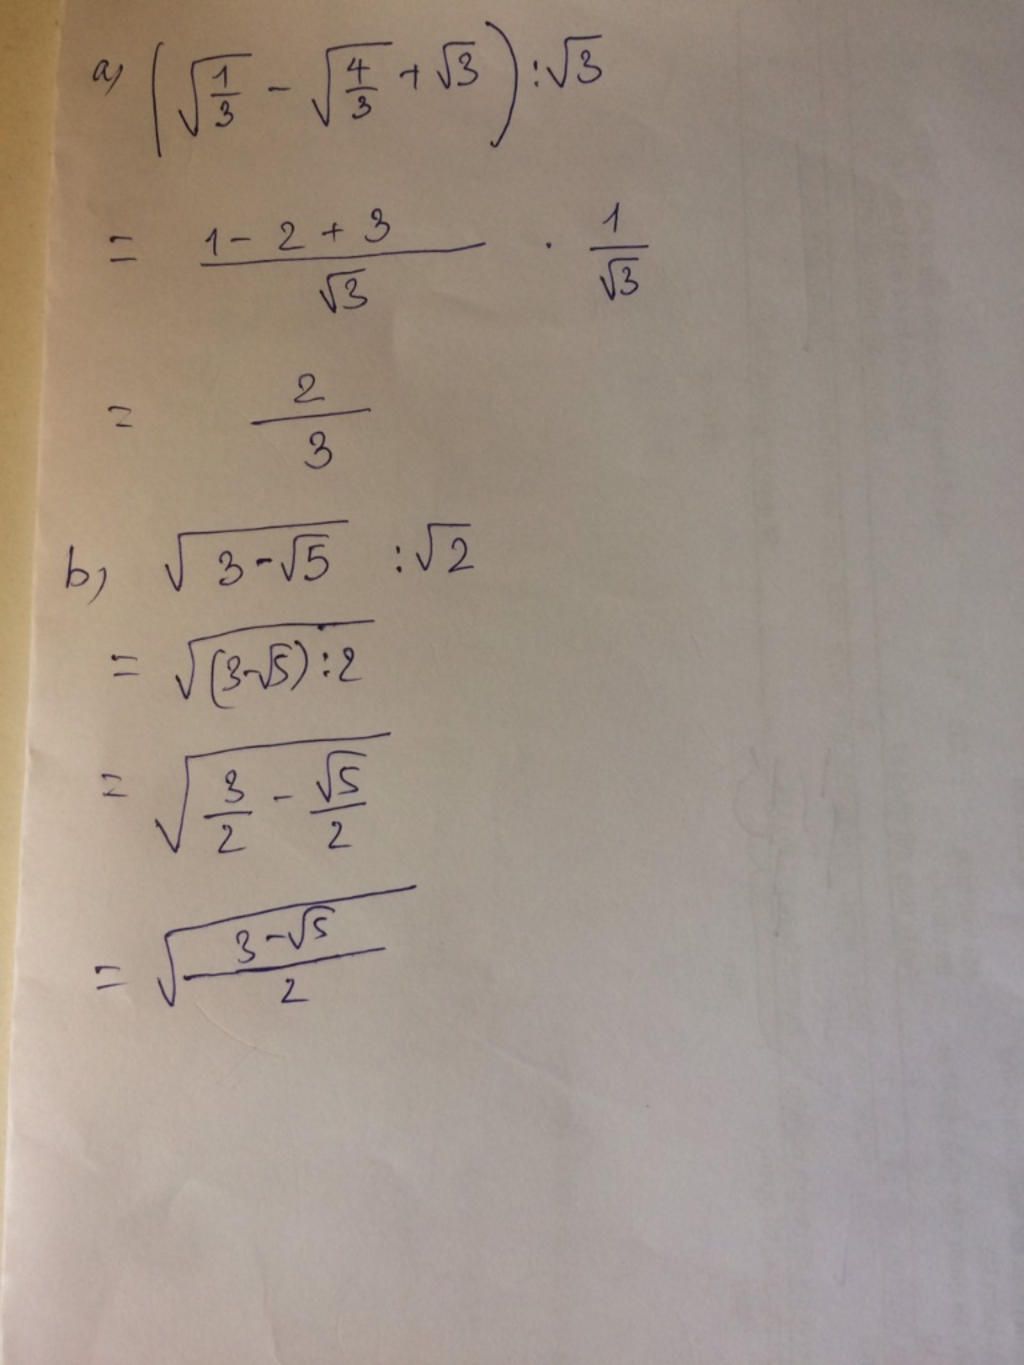 a) (√(1/3) - √(4/3) + √3) : √3
= (1 - 2 + 3)/√3 · 1/√3
= 2/3
b) √(3-√5) : √2
= √((3-√5):2)
= √(3/2 - √5/2)
= √((3-√5)/2)